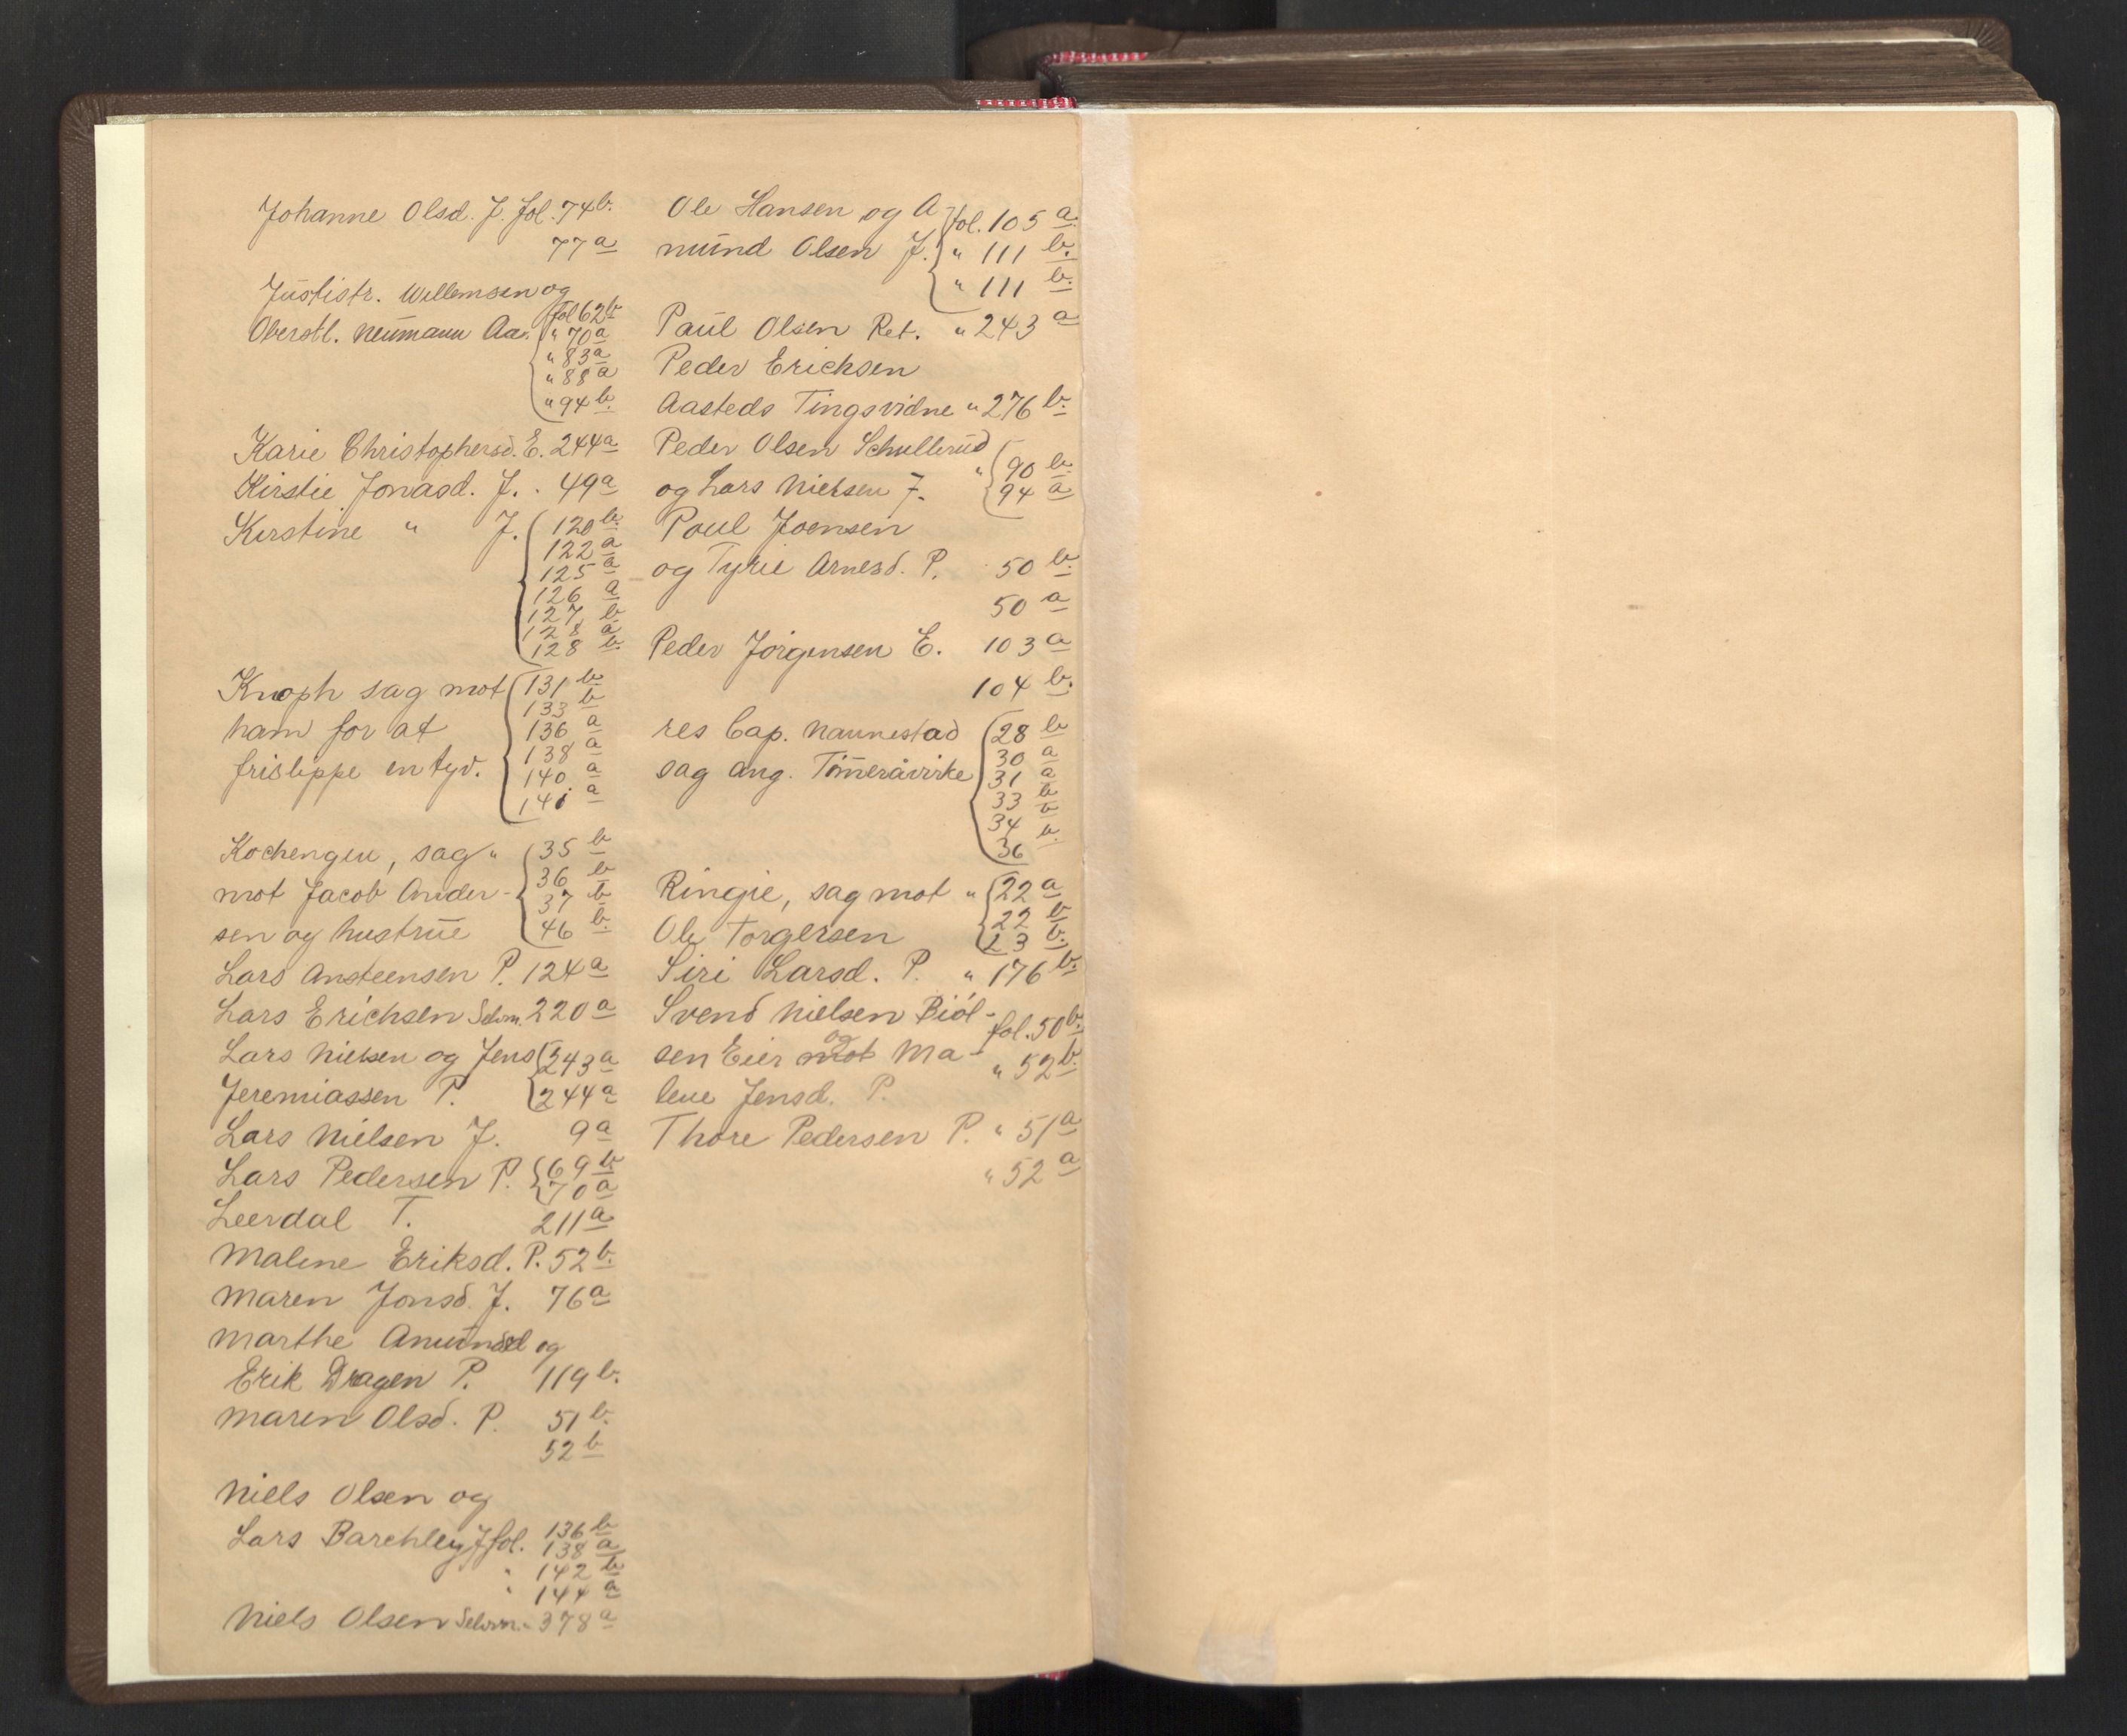 Johanne Olsd. J. fol. 74 b.
77 a
Justistr. Willemsen og
Oberstl. Neumann Aa. fol 62 b
" 70 a
" 83 a
" 88 a
" 94 b.
Karie Christophersd. E. 244 a
Kirstie Jonasd. J. . 49 a
Kirstine " J. 120 b.
122 a
125 a
126 a
127 b
128 a
128 b.
Knoph sag mot 131 b
133 b
ham for at 136 a
138 a
frisleppe en tyv. 140 a
141 a
Kochengen, sag " 35 b
36 b
mot Jacob Ander- 37 b
sen og hustrue 46 b.
Lars Ansteensen P. 124 a
Lars Erichsen Selvm. 220 a
Lars Nielsen og Jens 243 a
Jeremiassen P. 244 a
Lars Nielsen J. 9 a
Lars Pedersen P. 69 b
70 a
Leerdal T. 211 a
Malene Eriksd. P. 52 b.
Maren Jonsd. J. 76 a
Marthe Amundsd og
Erik Dragen P. 119 b.
Maren Olsd. P. 51 b.
52 b
Niels Olsen og
Lars Barchley J fol. 136 b
138 a
" 142 b
" 144 a
Niels Olsen Selvm. " 378 a
Ole Hansen og A- fol. 105 a
mund Olsen J. " 111 b.
" 111 b.
Paul Olsen Ret. " 243 a
Peder Ericksen
Aasteds Tingsvidne " 276 b.
Peder Olsen Schullerud
" 90 b.
og Lars Nielsen J. 94 a
Poul Joensen
og Tyrie Arnesd. P. 50 b.
50 a
Peder Jørgensen E. 103 a
104 b.
res Cap. Nannestad 28 b
30 a
sag ang. Tømeråvirke 31 a
33 b
34 b
36 b.
Ringie, sag mot " 22 a
22 b
Ole Torgersen 23 b.
Siri Larsd. P. " 176 b.
Svend Nielsen Biöl- fol. 50 b.
og
sen Eier mot Ma- " 52 b.
lene Jensd. P.
Thore Pedersen P. " 51 a
" 52 a